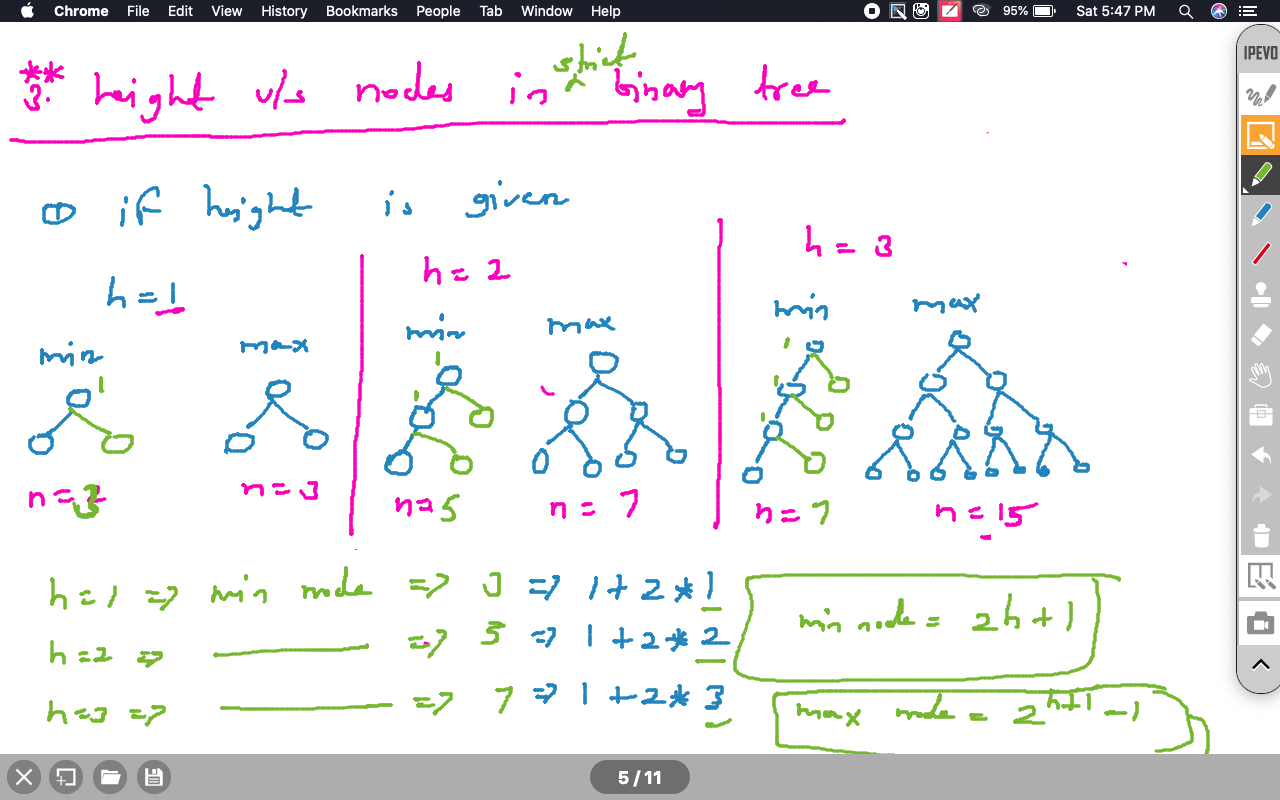 Chrome File Edit View History Bookmarks People Tab Window Help 95% Sat 5:47 PM
IPEVO
** 3. height v/s nodes in strict binary tree
① if height is given
h = 1
min max
1
n = 3 n = 3
h = 2
min max
1
1
n = 5 n = 7
h = 3
min max
1
1
1
n = 7 n = 15
h = 1 => min node => 3 => 1 + 2 * 1
h = 2 => ——— => 5 => 1 + 2 * 2
h = 3 => ——— => 7 => 1 + 2 * 3
min node = 2h + 1
max node = 2^(h+1) - 1
5 / 11